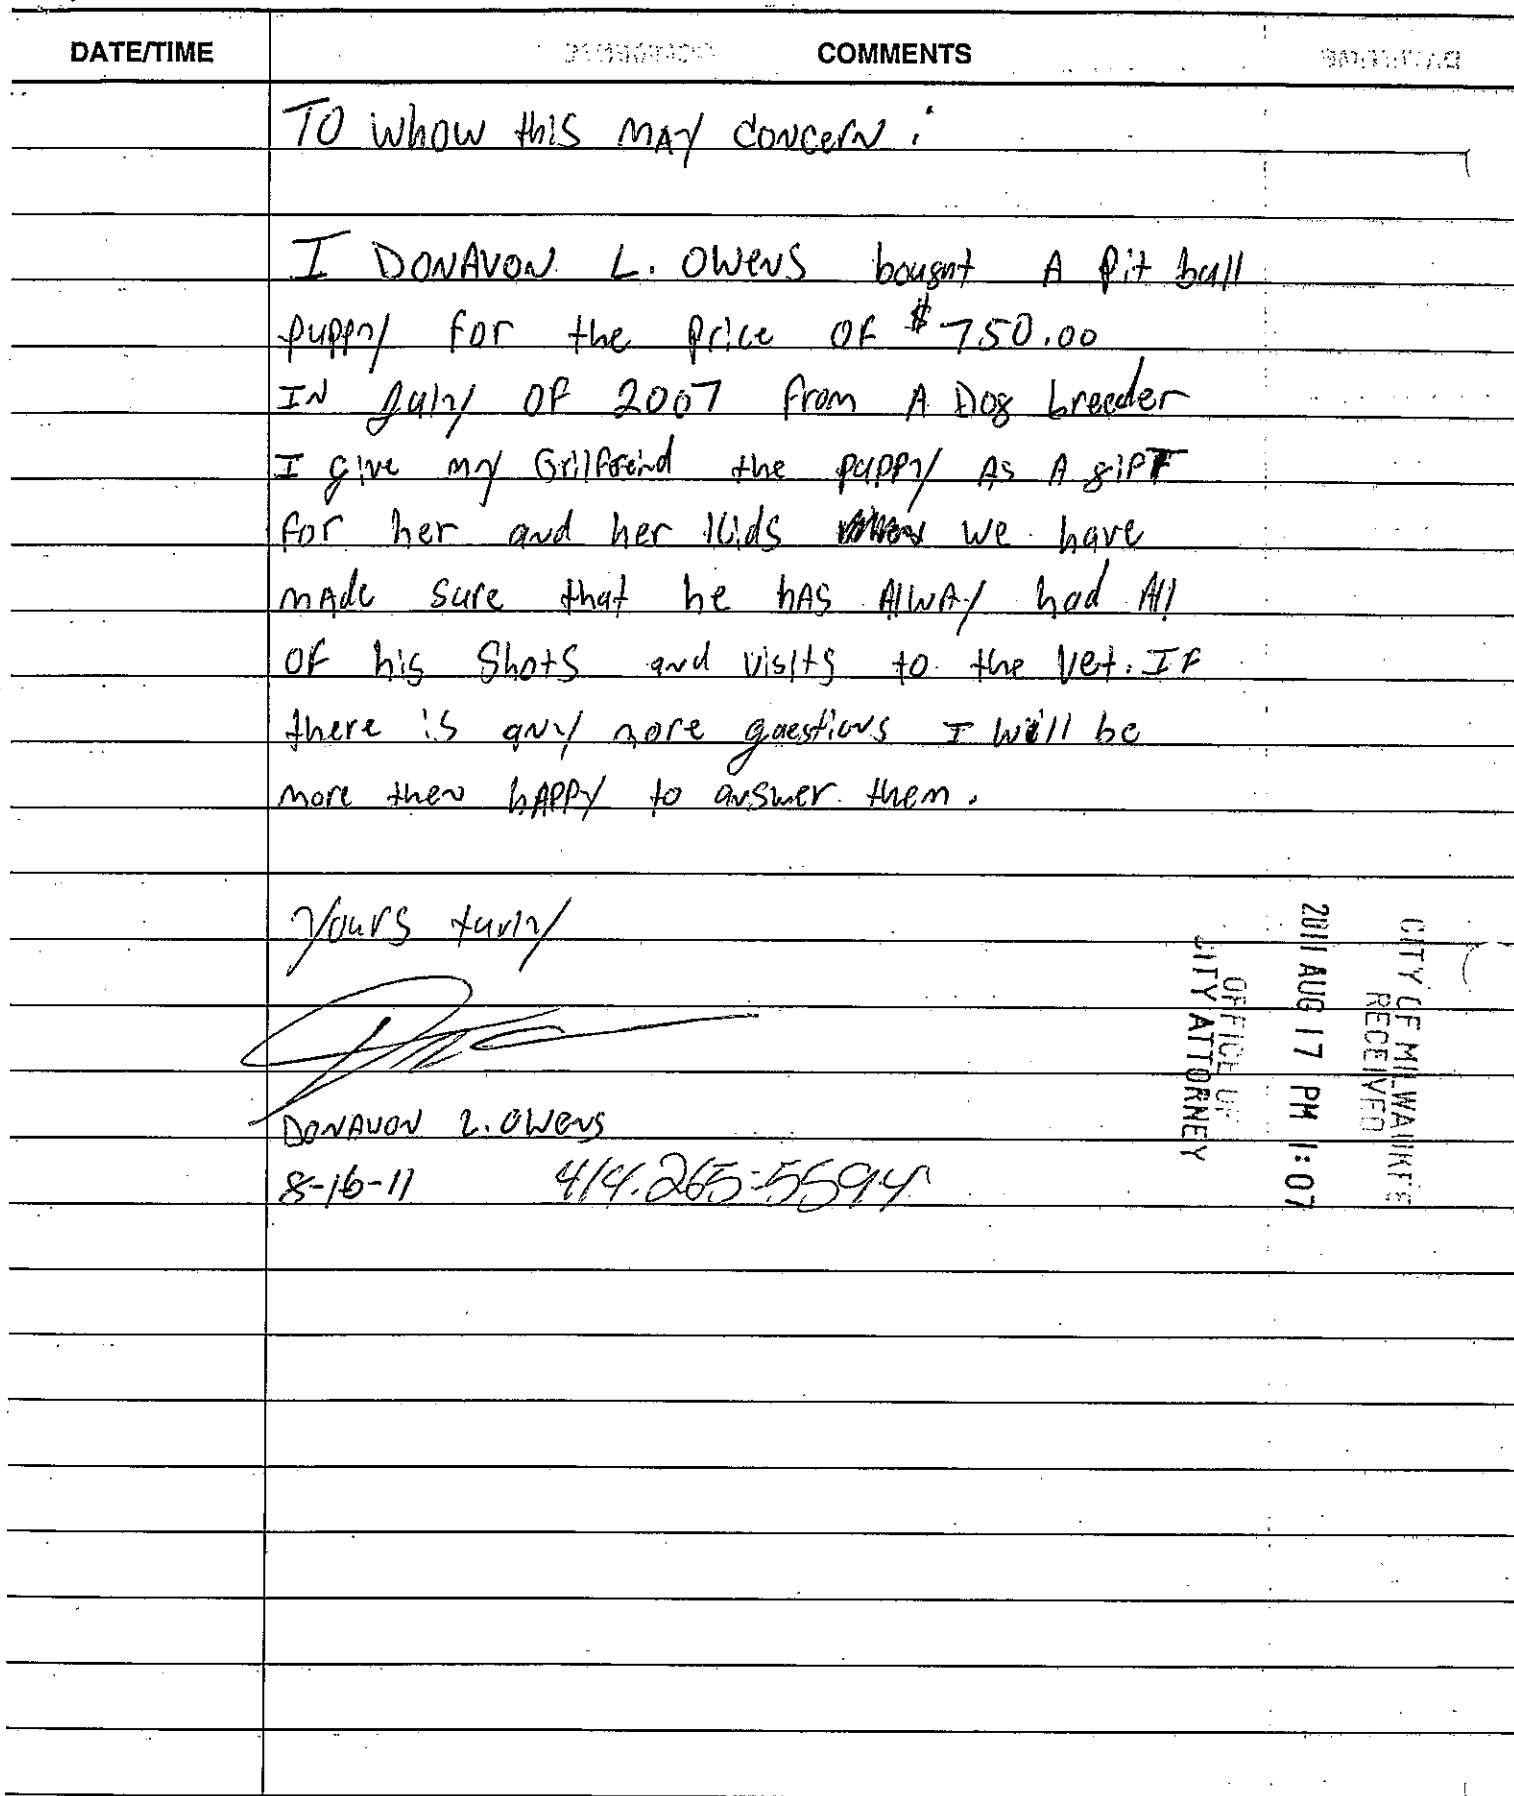 DATE/TIME COMMENTS
TO whow this MAY CONCERN:
I DONAVON L. OWENS bought A Pit bull
puppy for the price OF $750.00
IN July OF 2007 from A Dog breeder
I give my Grilfreind the puppy AS A gift
for her and her kids we have
made sure that he hAS AlWAY had All
OF his Shots and visits to the Vet. IF
there is any more questions I will be
more then hAPPY to answer them.
Yours turly
DONAVON L. OWENS
8-16-11 414.265-5594
CITY OF MILWAUKEE
RECEIVED
2011 AUG 17 PM 1:07
OFFICE OF
CITY ATTORNEY